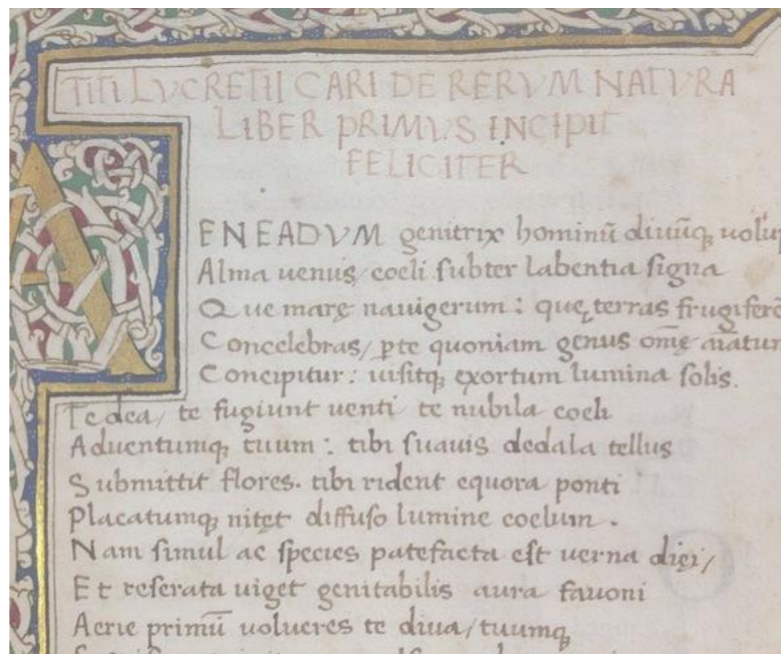 TITI LVCRETII CARI DE RERVM NATVRA
LIBER PRIMVS INCIPIT
FELICITER
AENEADVM genitrix hominū diuūqꝫ uolup
Alma uenus/ coeli subter labentia signa
Que marę nauigerum : quę terras frugifere
Concelebras/ ꝑte quoniam genus omę aīatum
Concipitur : uisitqꝫ exortum lumina solis.
Te dea/ te fugiunt uenti te nubila coeli
Aduentumqꝫ tuum : tibi suauis dedala tellus
Submittit flores. tibi rident equora ponti
Placatumqꝫ nitęt diffuso lumine coelum .
Nam simul ac species patefacta est uerna diei/
Et reserata uiget genitabilis aura fauoni
Aerie primū uolucres te diua/ tuumqꝫ